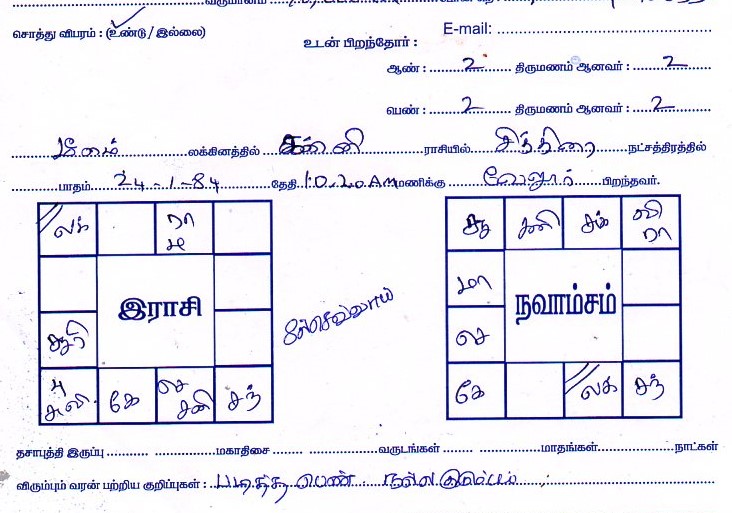 வருமானம்
சொத்து விபரம் : (உண்டு / இல்லை)
E-mail:
உடன் பிறந்தோர் :
ஆண் : 2 திருமணம் ஆனவர் : 2
பெண் : 2 திருமணம் ஆனவர் : 2
மீனம் லக்கினத்தில் கன்னி ராசியில் சித்திரை நட்சத்திரத்தில்
பாதம் 24-1-84 தேதி 10.20 AM மணிக்கு வேலூர் பிறந்தவர்.
லக் ரா
இராசி
சூரி
கே செ சனி சந்
செவ்வாய்
சனி
ரா
மா
நவாம்சம்
செ
கே லக் சந்
தசாபுத்தி இருப்பு மகாதிசை வருடங்கள் மாதங்கள் நாட்கள்
விரும்பும் வரன் பற்றிய குறிப்புகள் : படித்த பெண் நல்ல குடும்பம்